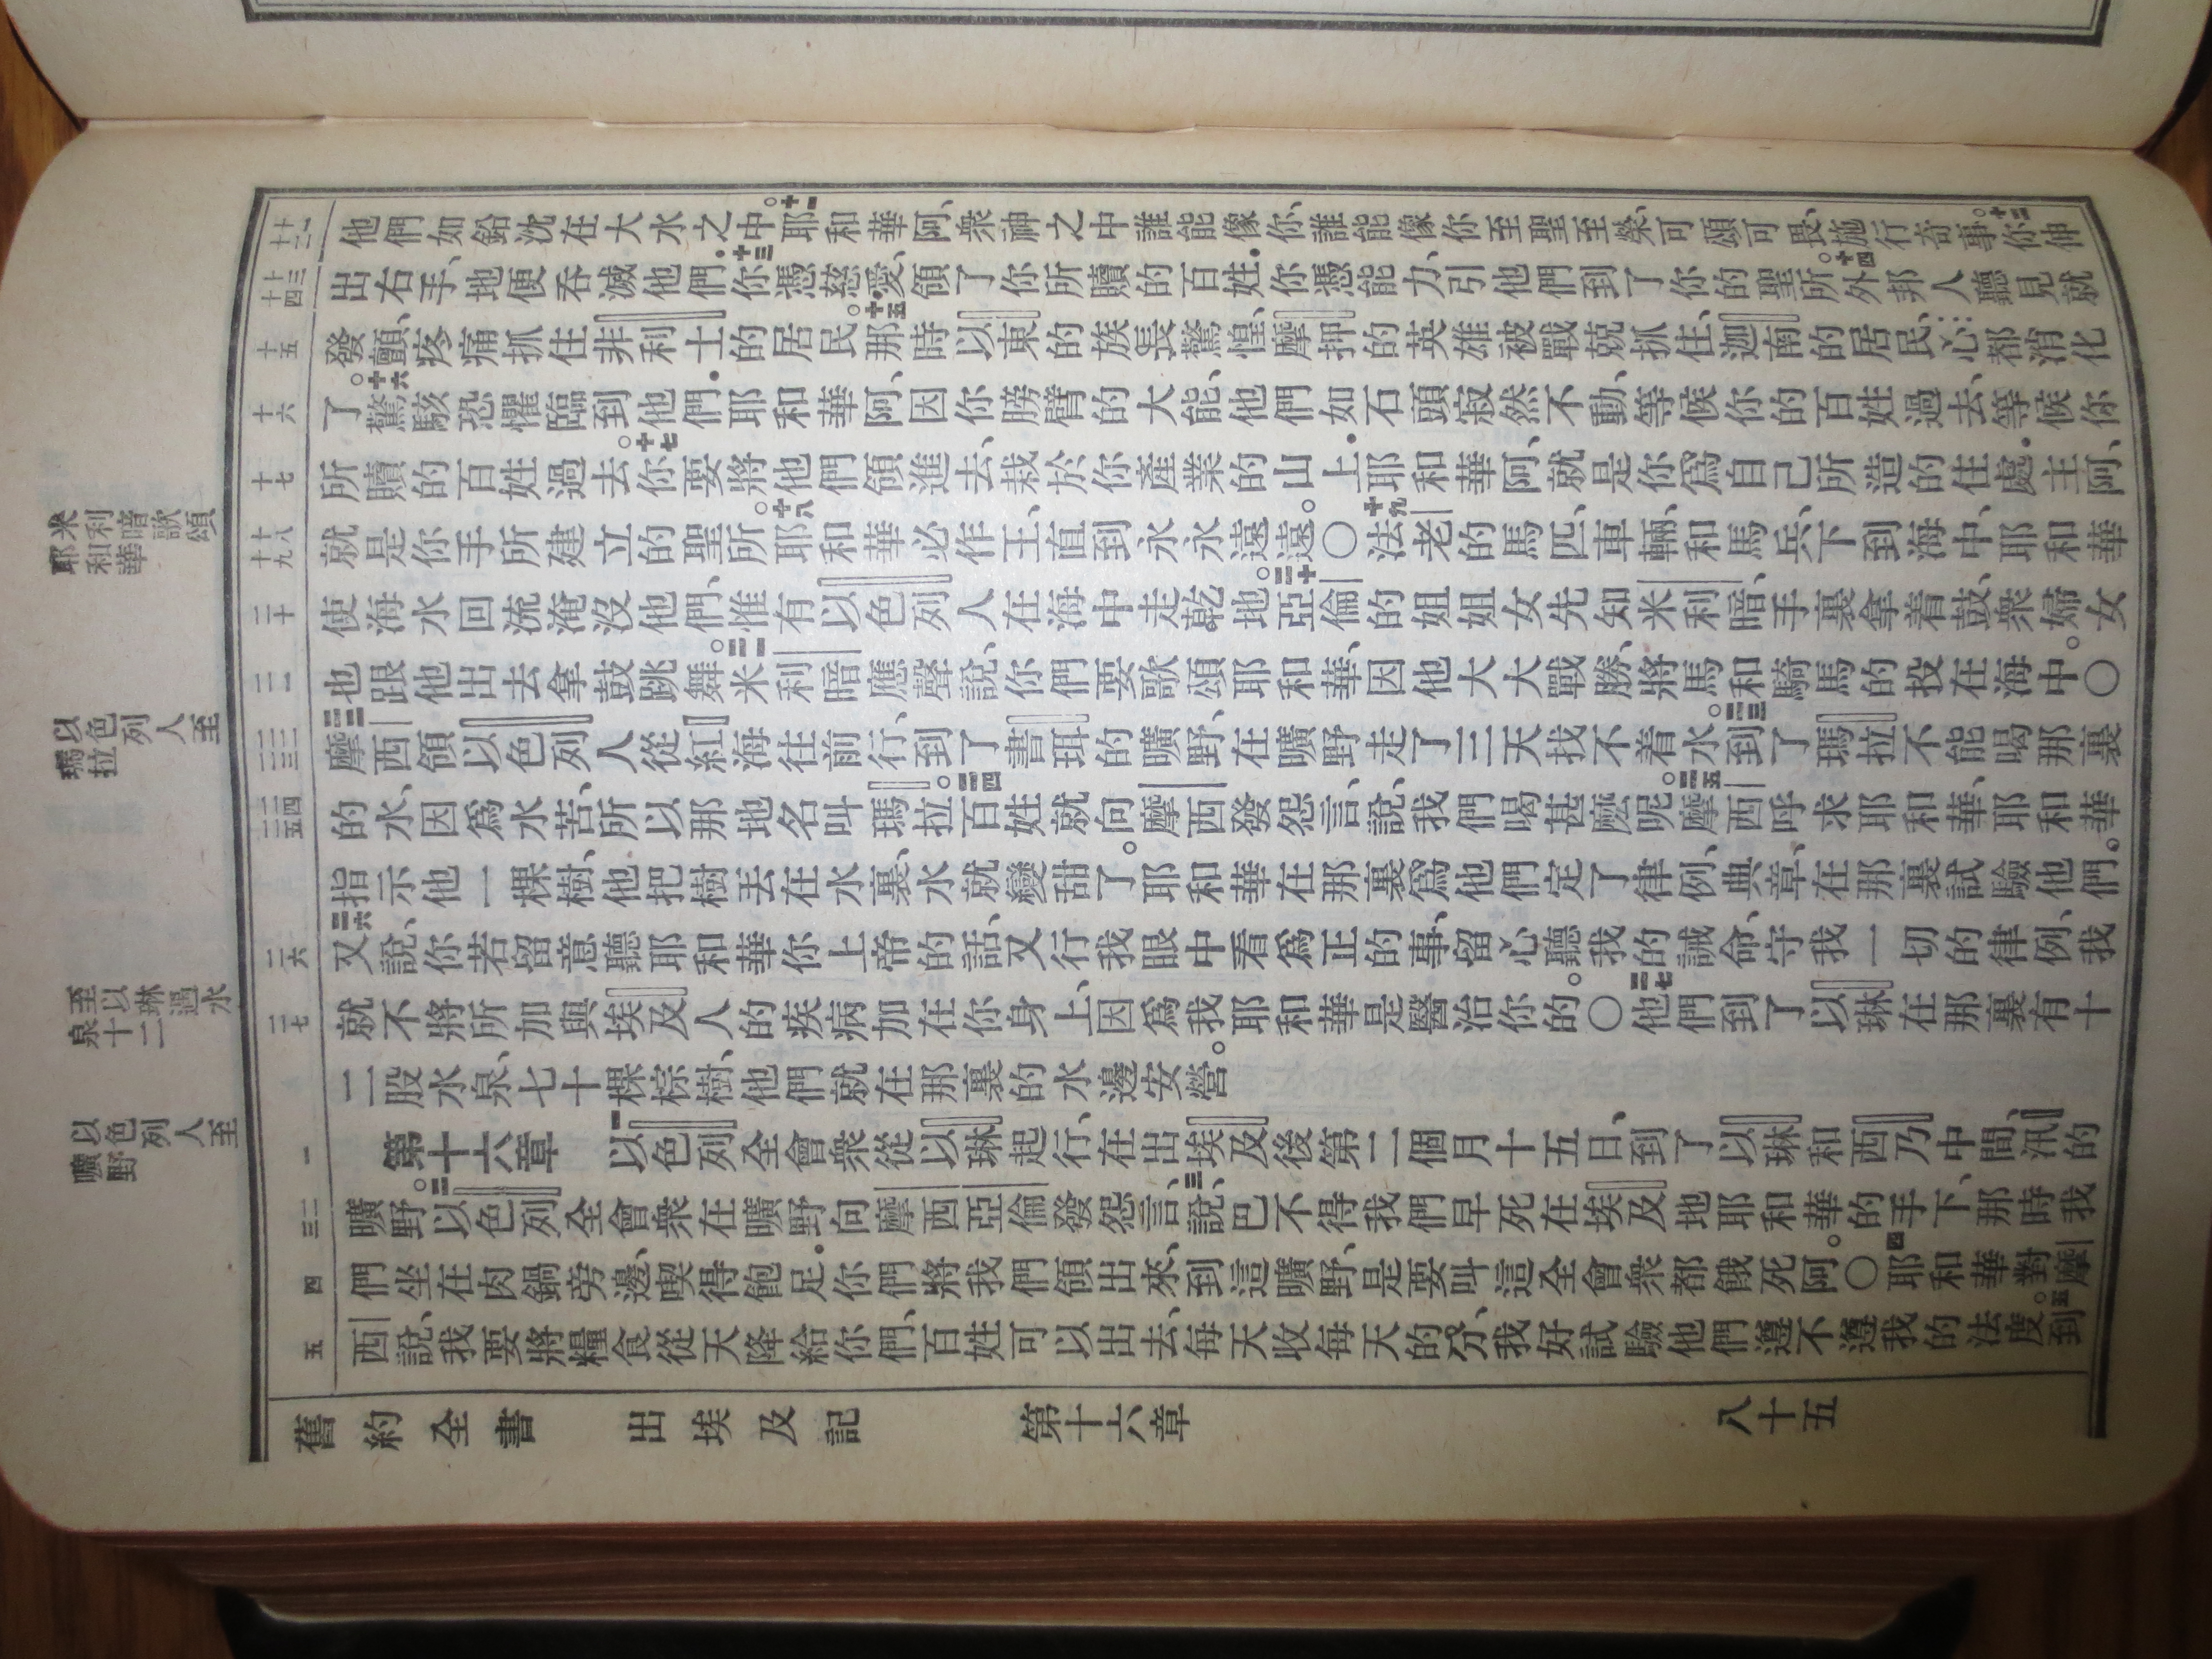 耶和華
米利暗歌頌
瑪拉
以色列人至
泉十二
至以琳遇水
曠野
以色列人至
十一
十二
十三
十四
十五
十六
十七
十八
十九
二十
二一
二二
二三
二四
二五
二六
二七
一
二
三
四
五
他們如鉛沈在大水之中。十一耶和華阿、衆神之中誰能像你、誰能像你至聖至榮、可頌可畏、施行奇事。十二你伸
出右手、地便吞滅他們．十三你憑慈愛、領了你所贖的百姓．你憑能力、引他們到了你的聖所。十四外邦人聽見就
發顫、疼痛抓住非利士的居民。十五那時以東的族長驚惶、摩押的英雄被戰兢抓住、迦南的居民、心都消化
了。十六驚駭恐懼臨到他們．耶和華阿、因你膀臂的大能、他們如石頭寂然不動、等候你的百姓過去、等候你
所贖的百姓過去。十七你要將他們領進去、栽於你產業的山上．耶和華阿、就是你爲自己所造的住處．主阿、
就是你手所建立的聖所。十八耶和華必作王、直到永永遠遠。〇十九法老的馬匹、車輛、和馬兵、下到海中、耶和華
使海水回流淹沒他們、惟有以色列人在海中走乾地。二十亞倫的姐姐女先知米利暗、手裏拿着鼓、衆婦女
也跟他出去拿鼓跳舞。二一米利暗應聲說、你們要歌頌耶和華、因他大大戰勝、將馬和騎馬的投在海中。〇
二二摩西領以色列人從紅海往前行、到了書珥的曠野、在曠野走了三天找不着水。二三到了瑪拉不能喝那裏
的水、因爲水苦、所以那地名叫瑪拉。二四百姓就向摩西發怨言、說、我們喝甚麼呢。二五摩西呼求耶和華、耶和華
指示他一棵樹、他把樹丟在水裏、水就變甜了。耶和華在那裏爲他們定了律例、典章、在那裏試驗他們。
二六又說、你若留意聽耶和華你上帝的話、又行我眼中看爲正的事、留心聽我的誡命、守我一切的律例、我
就不將所加與埃及人的疾病加在你身上、因爲我耶和華是醫治你的。〇二七他們到了以琳、在那裏有十
二股水泉、七十棵棕樹、他們就在那裏的水邊安營。
第十六章　一以色列全會衆從以琳起行、在出埃及後第二個月十五日、到了以琳和西乃中間、汛的
曠野。二以色列全會衆在曠野向摩西亞倫發怨言、三說、巴不得我們早死在埃及地耶和華的手下、那時我
們坐在肉鍋旁邊、喫得飽足．你們將我們領出來、到這曠野、是要叫這全會衆都餓死阿。〇四耶和華對摩
西說、我要將糧食從天降給你們、百姓可以出去、每天收每天的分、我好試驗他們遵不遵我的法度。五到
舊約全書　出埃及記　第十六章　八十五